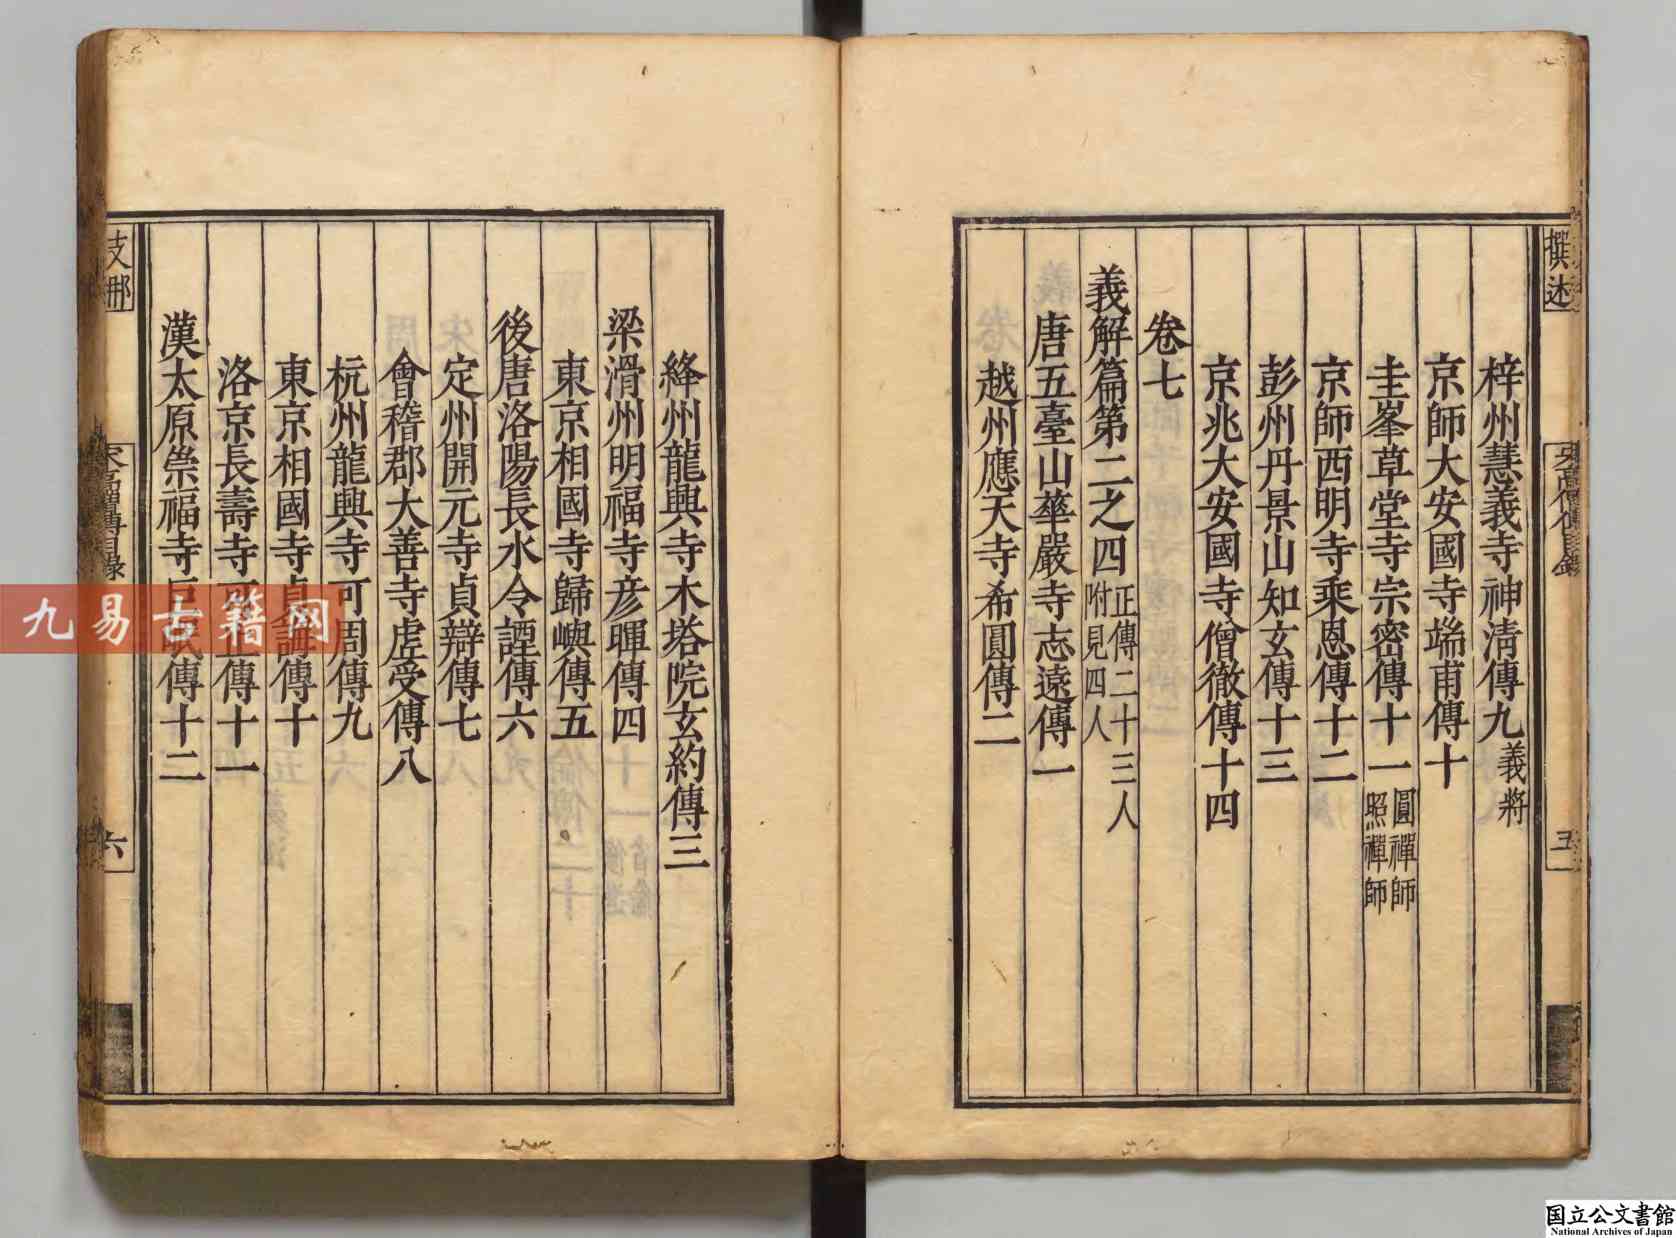 撰述
宋高僧傳目錄
五
梓州慧義寺神清傳九義將
京師大安國寺端甫傳十
圭峯草堂寺宗密傳十一圓禪師照禪師
京師西明寺乘恩傳十二
彭州丹景山知玄傳十三
京兆大安國寺僧徹傳十四
卷七
義解篇第二之四正傳二十三人附見四人
唐五臺山華嚴寺志遠傳一
越州應天寺希圓傳二
絳州龍興寺木塔院玄約傳三
梁滑州明福寺彥暉傳四
東京相國寺歸嶼傳五
後唐洛陽長水令諲傳六
定州開元寺貞辯傳七
會稽郡大善寺虛受傳八
杭州龍興寺可周傳九
東京相國寺貞誨傳十
洛京長壽寺可止傳十一
漢太原崇福寺巨岷傳十二
支那
宋高僧傳目錄
六
九易古籍网
国立公文書館
National Archives of Japan